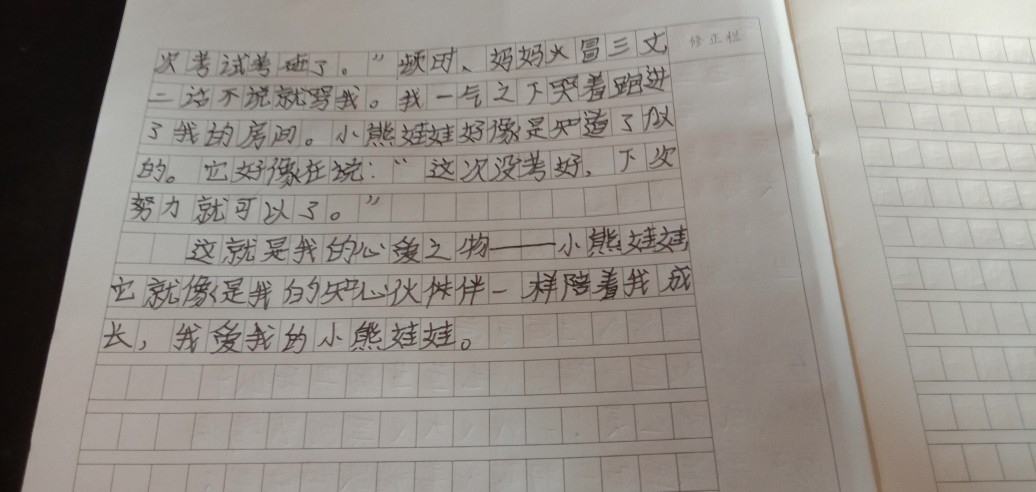 次考试考砸了。”顿时、妈妈火冒三丈
修正栏
二话不说就骂我。我一气之下哭着跑进
了我的房间。小熊娃娃好像是知道了似
的。它好像在说：“这次没考好、下次
努力就可以了。”
这就是我的心爱之物——小熊娃娃
它就像是我的知心伙伴一样陪着我成
长，我爱我的小熊娃娃。